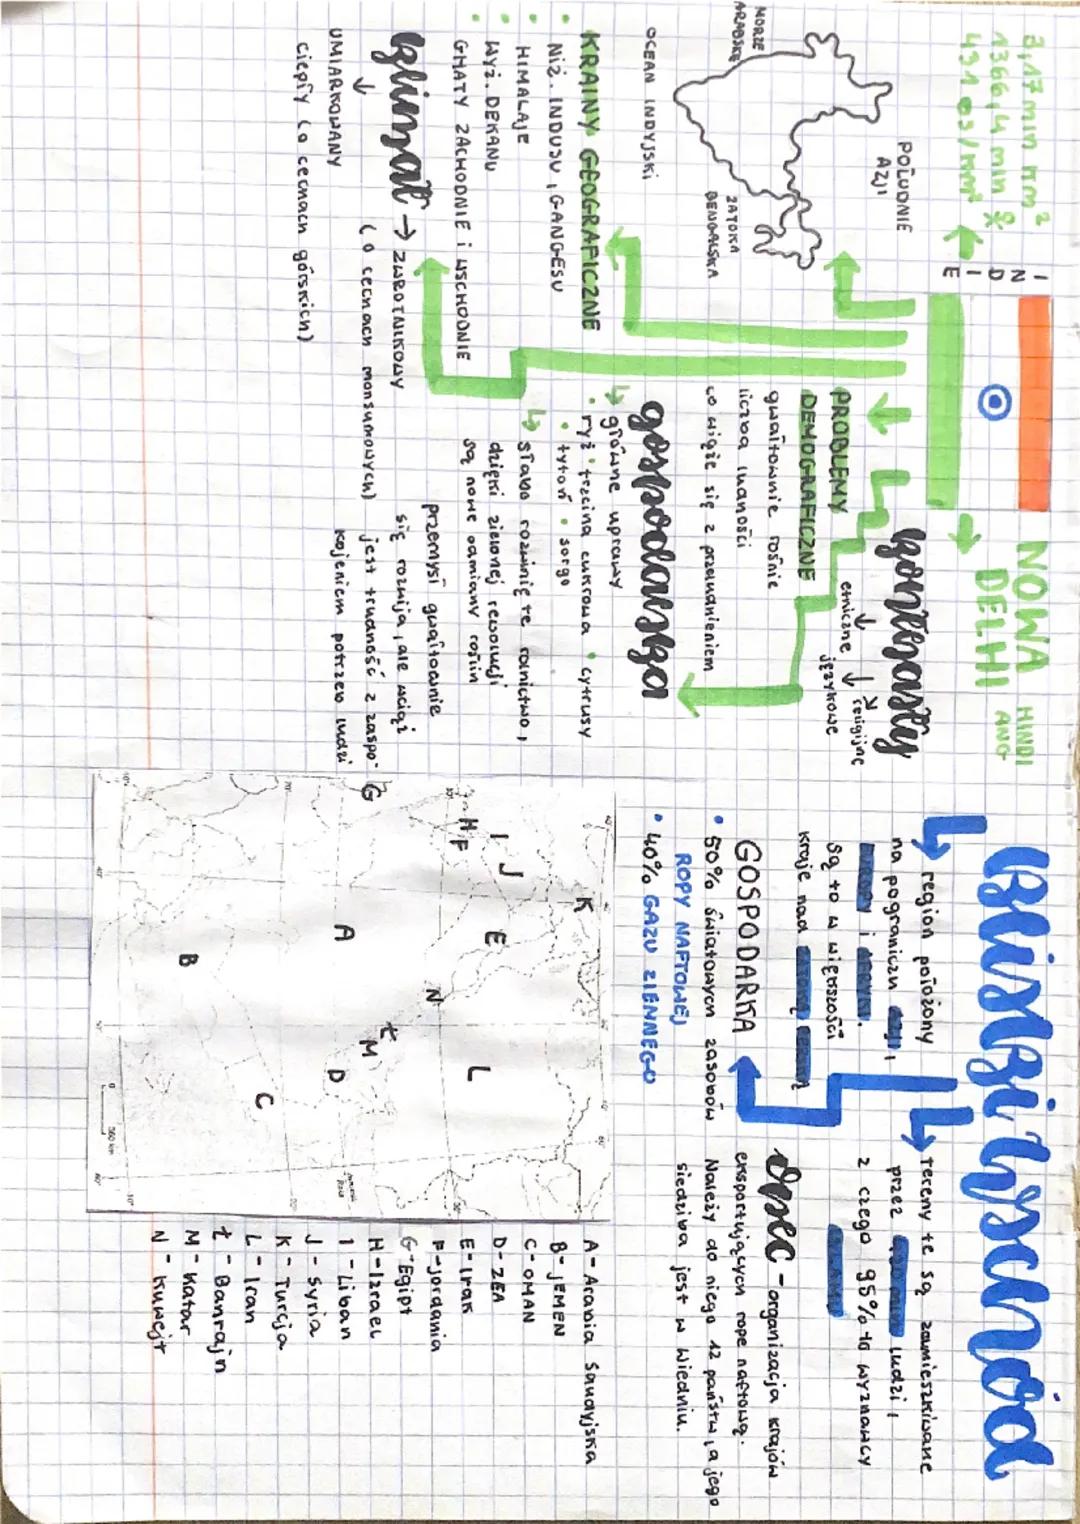 3,17 mln km²
1366,4 mln
431 os/km²
INDIE
NOWA DELHI
HINDI
ANG
POŁUDNIE
AZJI
MORZE
ARABSKIE
ZATOKA
BENGALSKA
OCEAN INDYJSKI
KRAINY GEOGRAFICZNE
• Niż. INDUSU, GANGESU
• HIMALAJE
• Wyż. DEKANU
• GHATY ZACHODNIE i WSCHODNIE
klimat → ZWROTNIKOWY
(o cechach monsumowych)
↓
UMIARKOWANY
ciepły (o cechach górskich)
kontrasty
↓ ↓ ↘
etniczne
językowe
religijne
PROBLEMY
DEMOGRAFICZNE
gwałtownie rośnie
liczba ludności
co wiąże się z przeludnieniem
gospodarka
↳ główne uprawy
• ryż • trzcina cukrowa • cytrusy
• tytoń • sorgo
↳ słabo rozwinięte rolnictwo,
dzięki zielonej rewolucji
są nowe odmiany roślin
przemysł gwałtownie
się rozwija, ale wciąż
jest trudność z zaspo-
kojeniem potrzeb ludzi
Bliski Wschód
↳ region położony
na pograniczu Azji,
Europy i Afryki.
Są to w większości
kraje nad zatoką perską
↳ tereny te są zamieszkiwane
przez ludzi,
z czego 95% to wyznawcy
islamu
GOSPODARKA
• 50% światowych zasobów
ROPY NAFTOWEJ
• 40% GAZU ZIEMNEGO
OPEC - organizacja krajów
eksportujących ropę naftową.
Należy do niego 12 państw, a jego
siedziba jest w Wiedniu.
K
I
J
E
L
H
F
N
G
A
Ł
M
D
B
C
0
500 km
A - Arabia Saudyjska
B - JEMEN
C - OMAN
D - ZEA
E - Irak
F - Jordania
G - Egipt
H - Izrael
I - Liban
J - Syria
K - Turcja
L - Iran
Ł - Bahrajn
M - Katar
N - Kuwejt